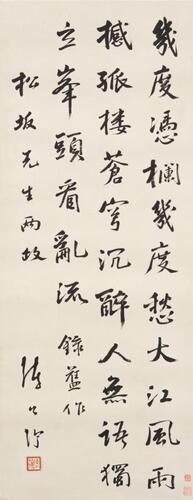 幾度憑欄幾度愁大江風雨
撼孤楼蒼穹沉醉人無語獨
立峯頭看亂流 錄舊作
松坂先生
陳公博